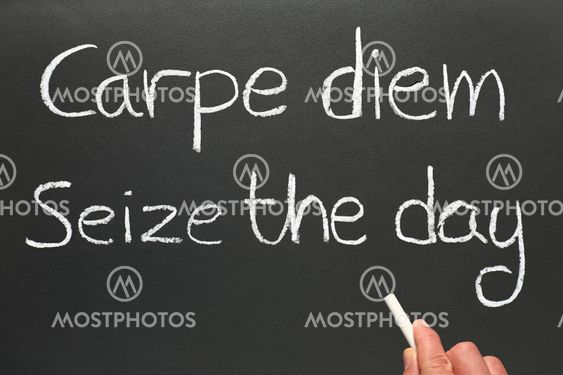 Carpe diem
Seize the day
MOSTPHOTOS
MOSTPHOTOS
MOSTPHOTOS
MOSTPHOTOS
MOSTPHOTOS
MOSTPHOTOS
MOSTPHOTOS